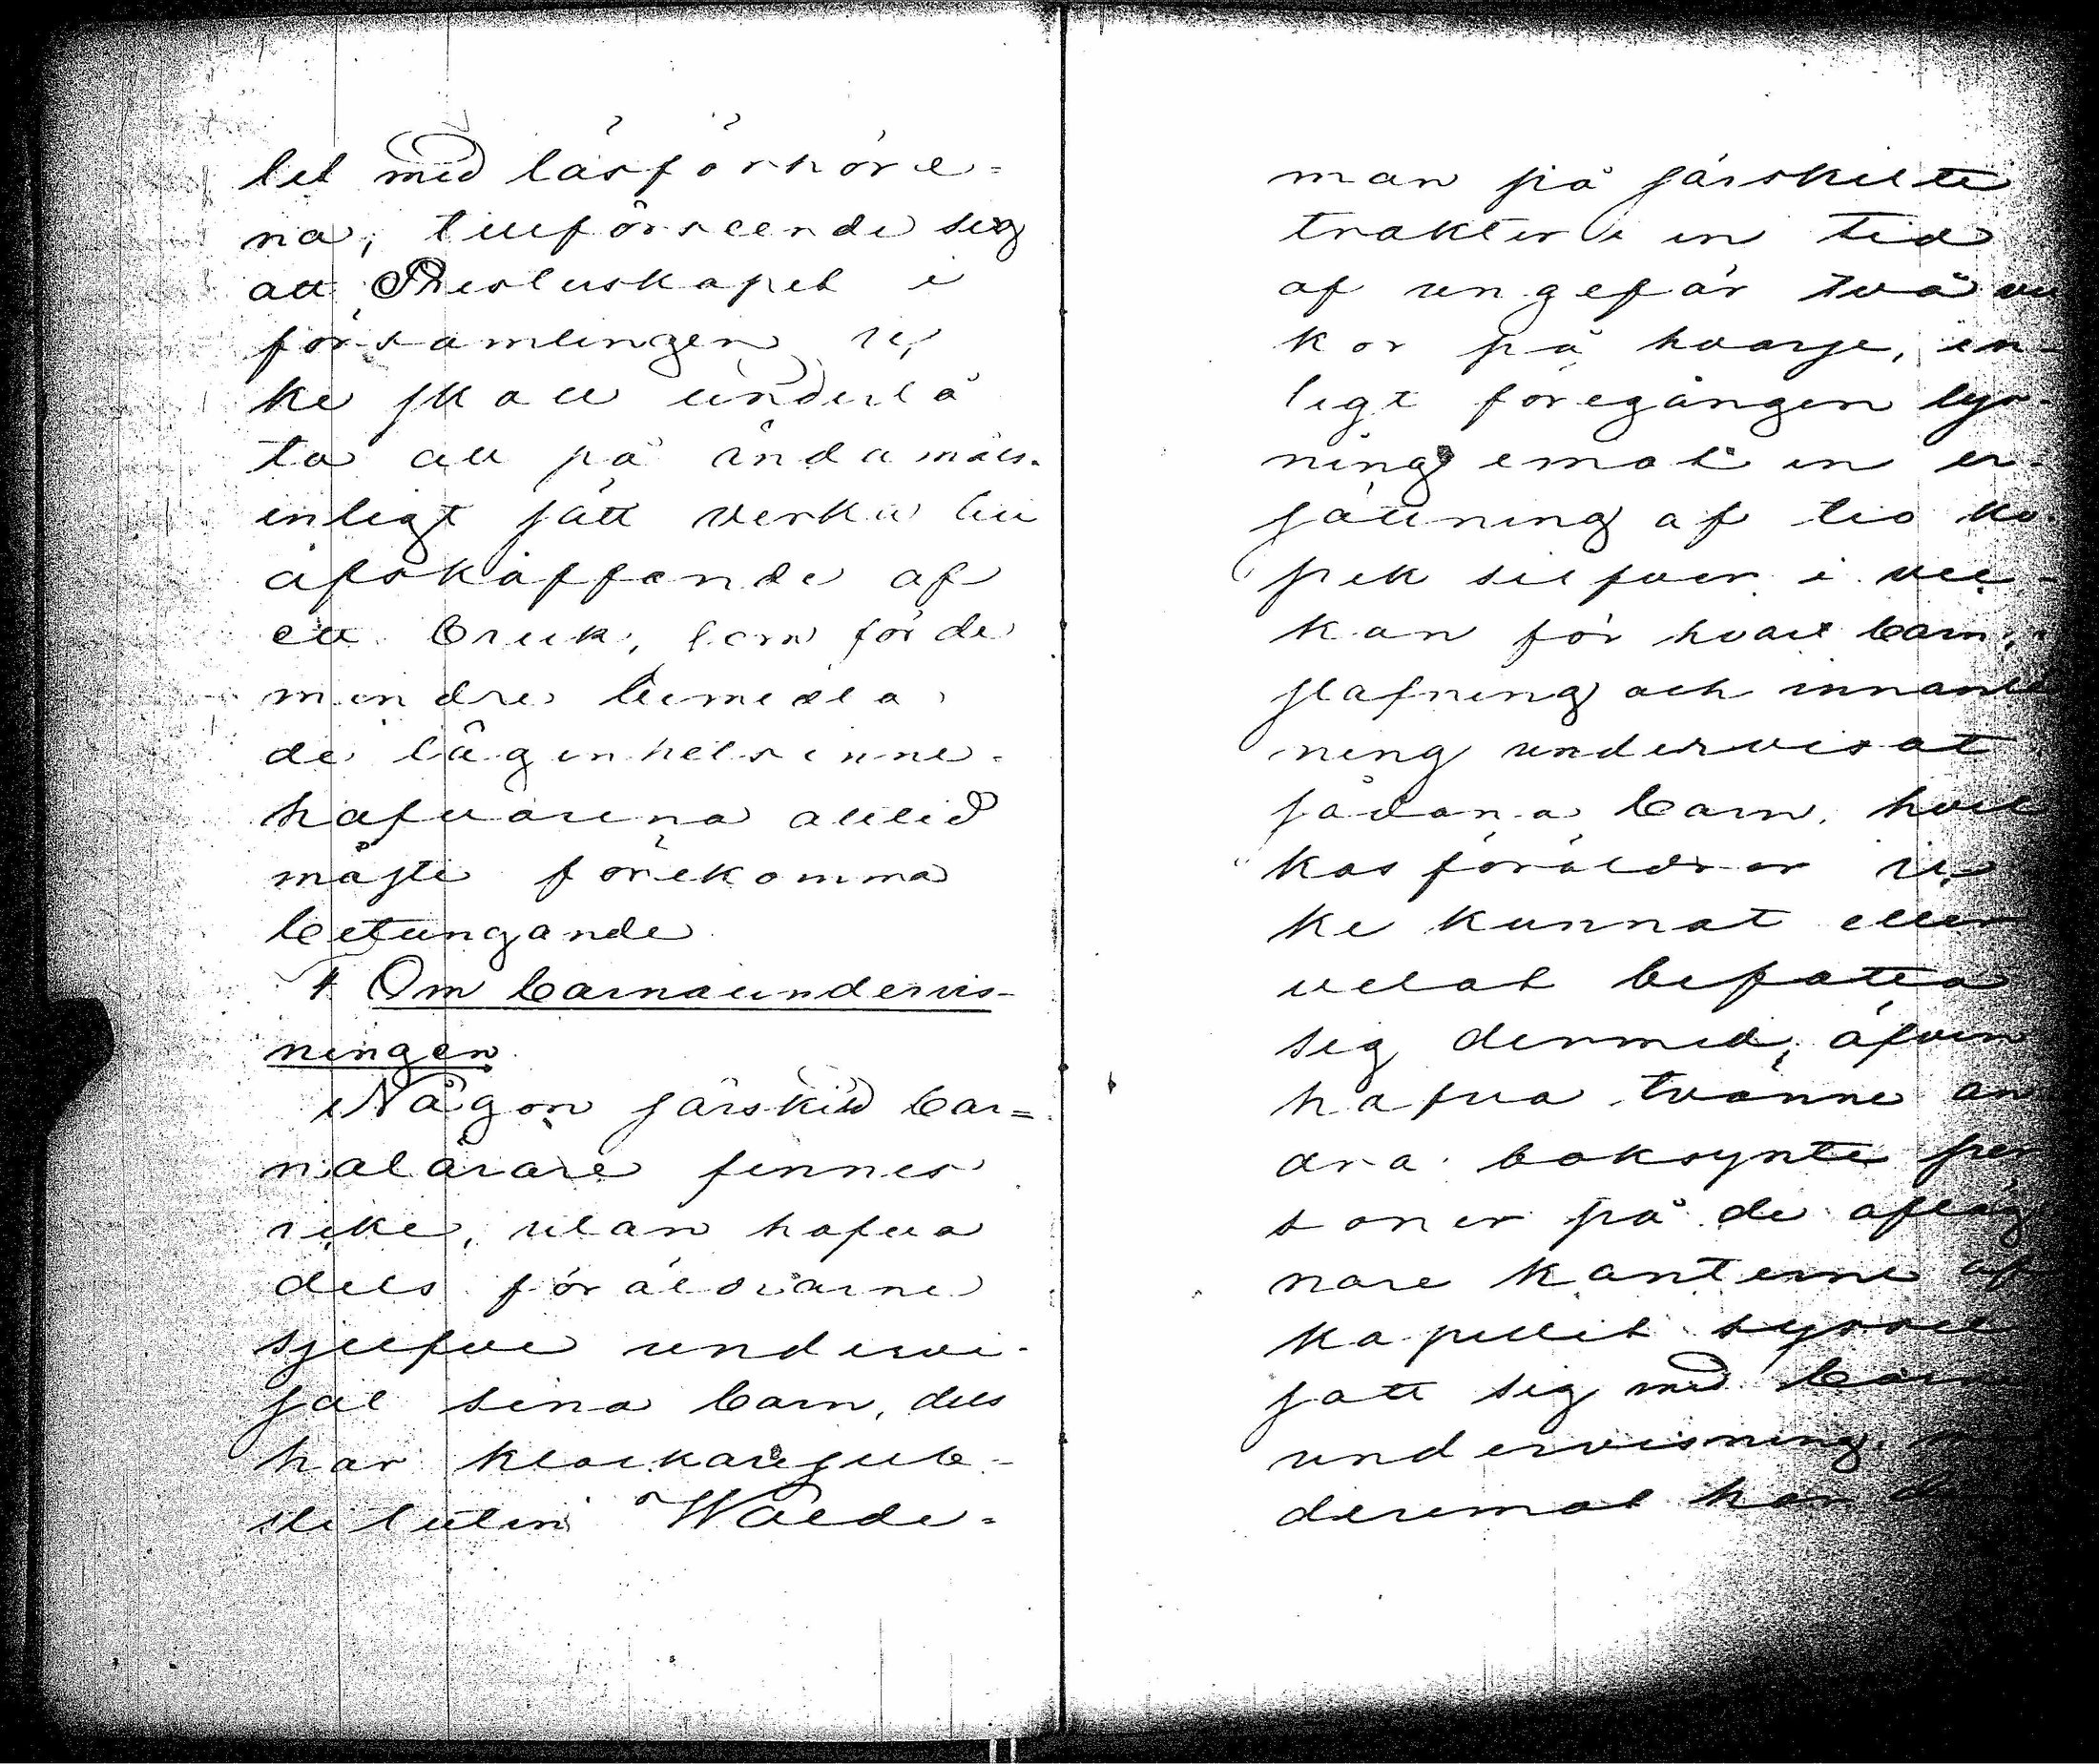 let med läsförhöre-
na; tillförseende sig
att Presterskapet i
församlingen ic,
ke skall underlå
ta att på ändamåls-
enligt sätt verka till
afskaffande af
ett bruk, som för de
mindre bemedla
de lägenhetsinne-
hafvarena alltid
måste förekomma
betungande
4 Om barnaundervis-
ningen
Någon särskild bar=
nalärare finnes
icke, utan hafva
dels föräldrarne
sjelfve undervi-
sat sina barn, dels
har klockaresub-
stituten Walde=
man på särskilte
trakter i en tid
af ungefär två vec
kor på hvarje, en-
ligt föregången lys-
ning emot en er-
sättning af tio ko-
pek silfver i vec-
kan för hvart barn, i
stafning och innanlä
ning undervisat
sådana barn, hvil
kas föräldrar ic-
ke kunnat eller
velat befatta
sig dermed; äfven
hafva tvänne an
dra boksynte per
soner på de afläg
nare kanterne af
kapellet syssel
satt sig med barna
undervisning,
deremot har